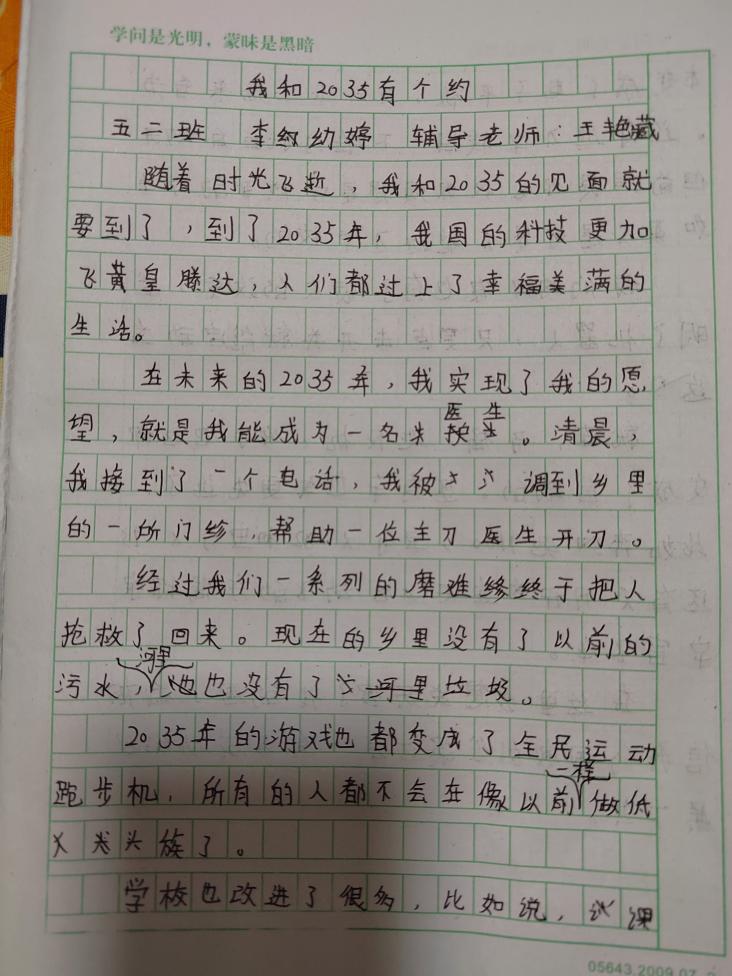 学问是光明，蒙昧是黑暗
我和2035有个约
五二班 李 幼婷 辅导老师：王艳藏
随着时光飞逝，我和2035的见面就
要到了，到了2035年，我国的科技更加
飞黄皇腾达，人们都过上了幸福美满的
生活。
在未来的2035年，我实现了我的愿
医生
望，就是我能成为一名。清晨，
我接到了一个电话，我被调到乡里
的一所门诊，帮助一位主刀医生开刀。
经过我们一系列的磨难终于把人
抢救了回来。现在的乡里没有了以前的
河里
污水，也没有了河里垃圾。
2035年的游戏也都变成了全民运动
一样
跑步机，所有的人都不会在像以前做低
头族了。
学校也改进了很多，比如说，课
05643.2009.07